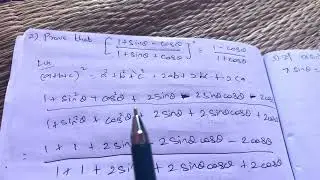 2) Prove that [1+sinθ-cosθ / 1+sinθ+cosθ]² = 1-cosθ / 1+cosθ
(a+b+c)² = a²+b²+c²+2ab+2bc+2ca
1+sin²θ+cos²θ+2sinθ-2sinθcosθ-2cos
(1+sin²θ+cos²θ+2sinθ+2sinθcosθ+2cos
= 1+1+2sinθ-2sinθcosθ-2cosθ
1+1+2sinθ+2sinθcosθ+2cosθ